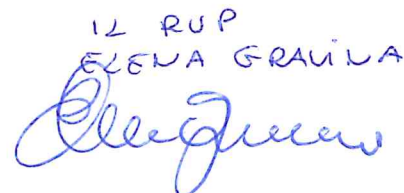 IL RUP
ELENA GRAVINA